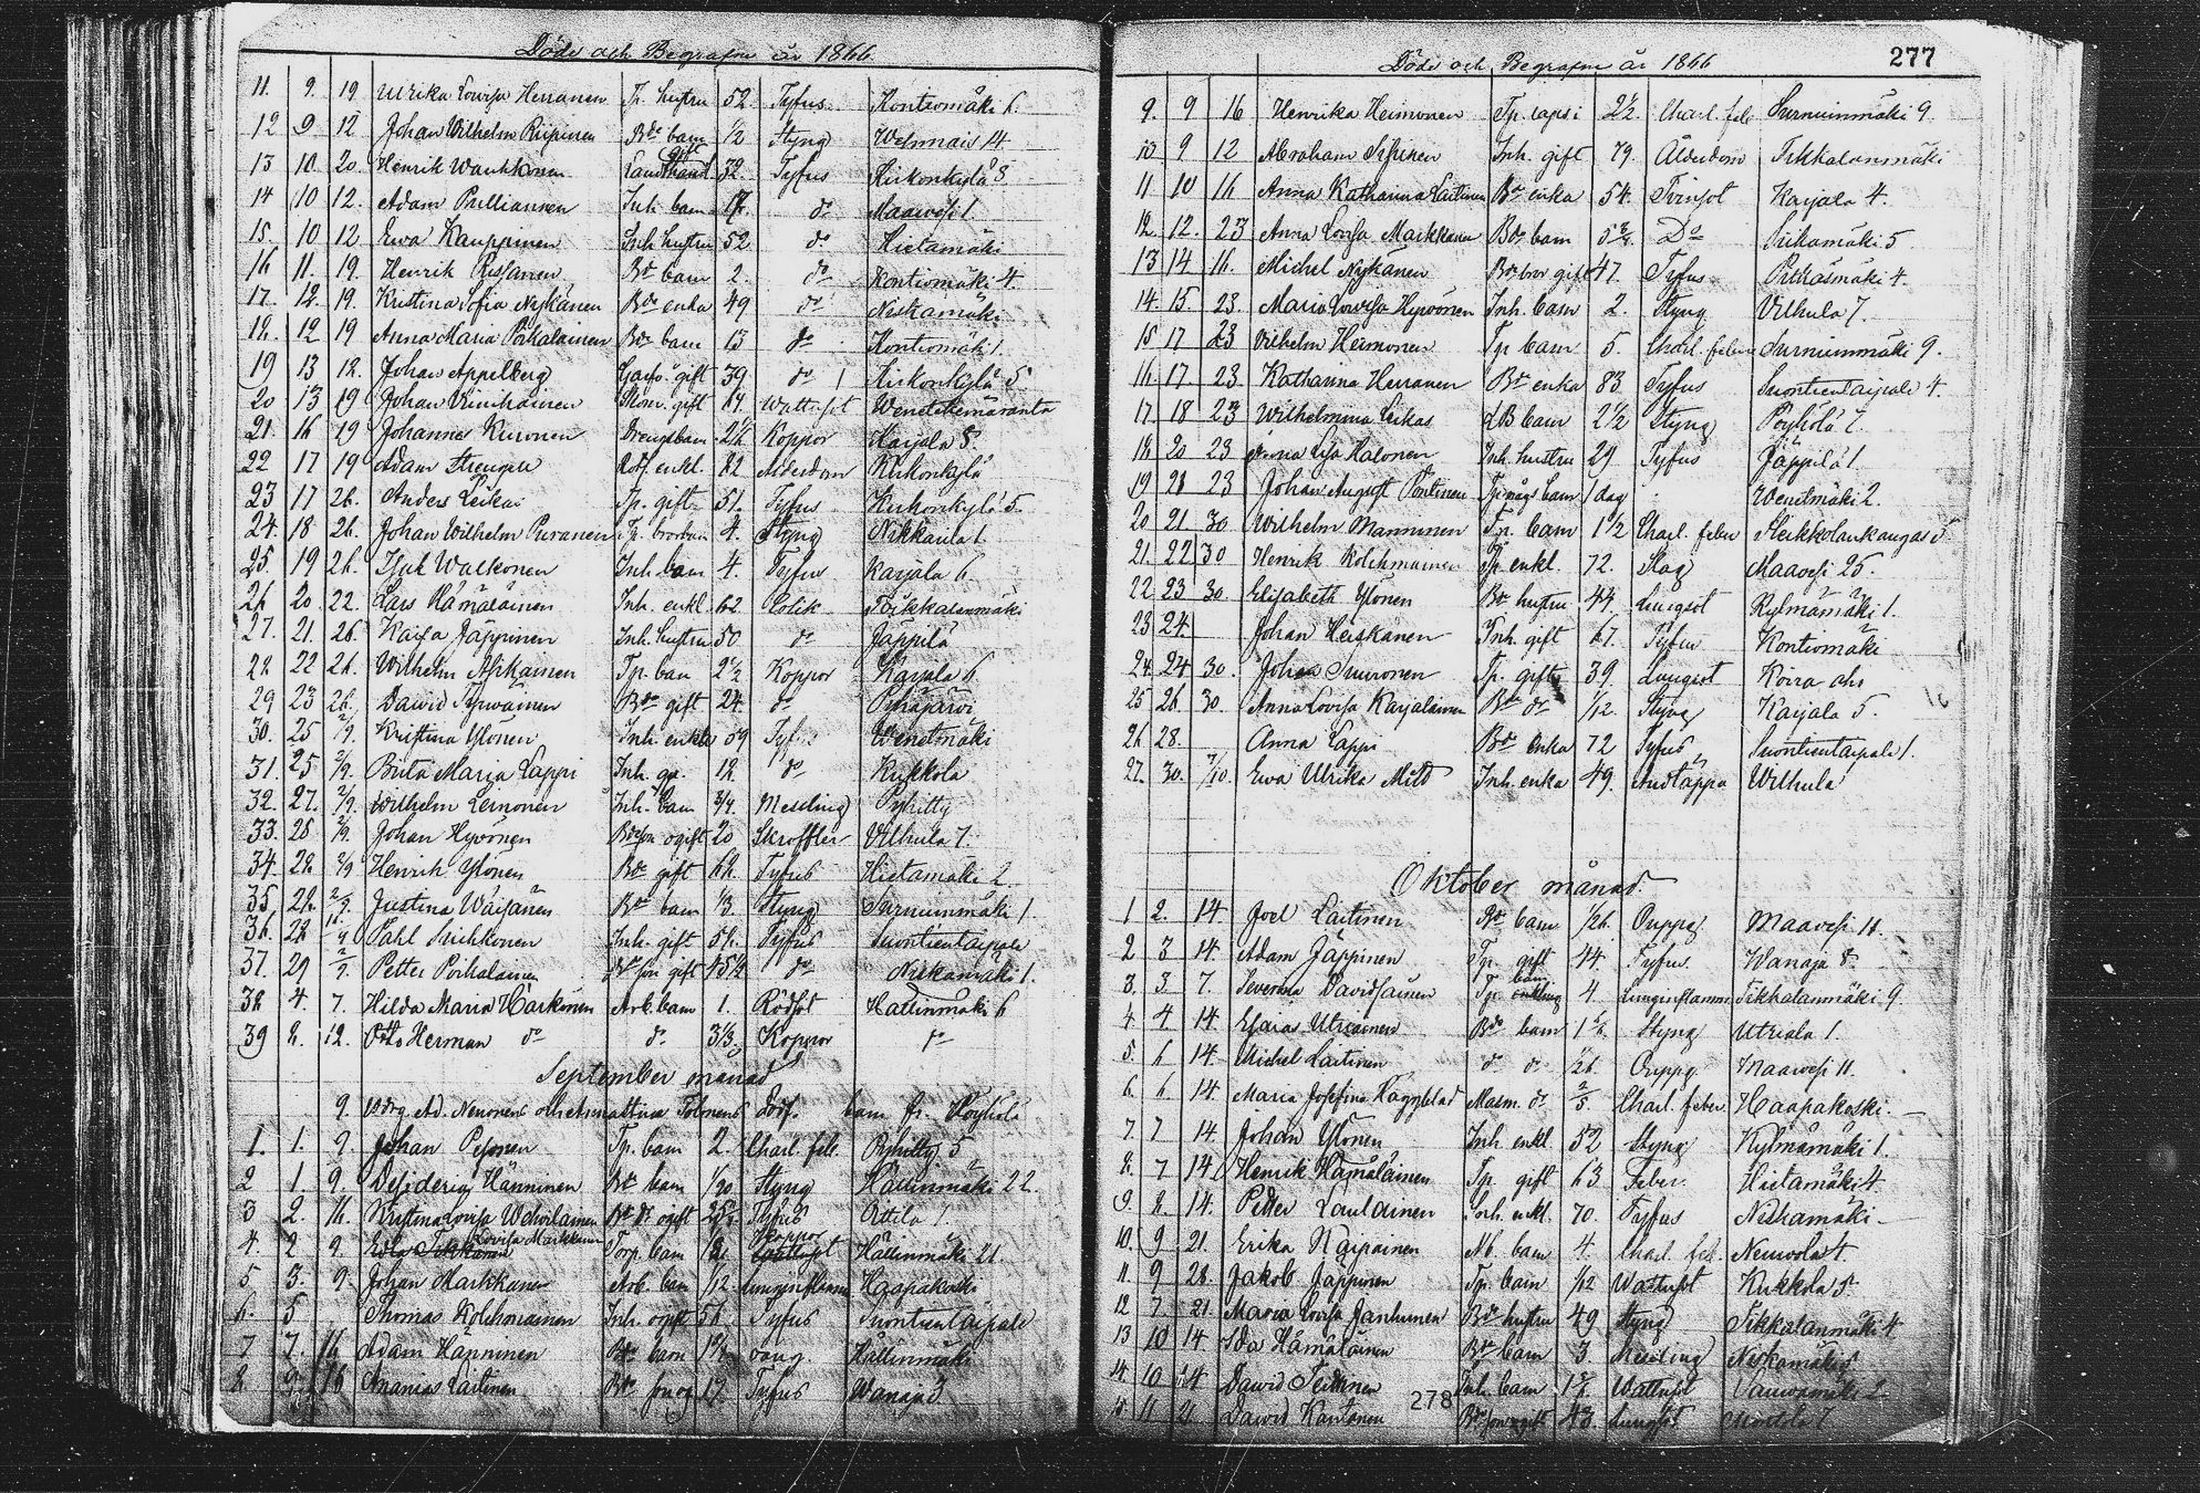 Döde och Begrafne år 1866
11. 9. 19 Ulrika Lovisa Herranen Tp. hustru 52. Tyfus. Kontiomäki 6.
12 9 12 Johan Wilhelm Riipinen Bde barn 1/2 Styng Wehmais 14
13 10. 20. Henrik Wauhkonen gift 32. Tyfus Kirkonkylä 8
14 10 12. Adam Pulliainen Inh. barn do Maavesi 1
15. 10 12 Ewa Kauppinen Inh. hustru 52 do Hietamäki
16 11. 19. Henrik Rissanen Bde barn 2. do Kontiomäki 4.
17. 12. 19. Kristina Sofia Nykänen Bde enka 49 do Niskamäki
18. 12 19 Anna Maria Poikalainen Bde barn 13 do Kontiomäki 1.
19 13 12. Johan Appelberg gift 39 do Kirkonkylä 5
20 13 19 Johan gift 64. Wattusot Wenetekemäranta
21. 16 19 Johannes Kuronen Drengsbarn Koppor Karjala 8
22 17 19 Adam Strengell enkl. 82 Ålderdom Kirkonkylä
23 17 26. Anders Leikas Tp. gift 51. Tyfus Kirkonkylä 5.
24. 18 26. Johan Wilhelm Puranen Tp. brorbarn 4. Styng Nikkarila 1
25. 19 26. Isak Walkonen Inh. barn 4. Tyfus Karjala 6.
26 20. 22. Lars Hämäläinen Inh. enkl. 62 Kolik Tikkalanmäki
27. 21. 26. Kaisa Jäppinen Inh. hustru 50 do Jäppilä
28 22 26. Wilhelm Asikainen Tp. barn 2 1/2 Koppor Karjala 6
29 23 26. David Tyrwäinen Bde gift 24. do Pyhäjärvi
30. 25 2/9. Kristina Ylönen Inh. enka 59 Tyfus Wenetmäki
31. 25 2/9. Brita Maria Lappi Inh. 12 do Kukkola
32. 27. 2/9. Wilhelm Leinonen Inh. barn 3/4 Messling Pyhitty
33. 28 2/9. Johan Hyvönen Bdeson ogift 20 Skroffler Vilhula 7.
34. 28. 2/9 Henrik Ylönen Bde gift 68. Tyfus Hietamäki 2
35 28. 2/9. Justina Wäisänen Bde barn 1/3. Styng Surnuinmäki 1.
36. 28 Pahl Suihkonen Inh. gift 56. Tyfus Suontientaipale
37. 29 2/9. Petter Poikalainen gift do Niskamäki 1.
38 4. 7. Hilda Maria Härkönen Arb. barn 1. Rödsot Hällinmäki 6
39 8. 12. Otto Herman do do 3 1/3. Koppor do
September månad
9. Ad. Nenonens och Tolonens död. barn fr. Höyhölä
1. 1. 9. Johan Pesonen Tp. barn 2. Charl. feb. Pyhitty 5
2 1 9. Desideria Hänninen Bde barn 1/20 Styng Hällinmäki 22.
3 2. 16. Kristina Lovisa Wehviläinen Bde dr ogift Tyfus Attila 1.
4. 2 9. Lovisa Markkanen Torp. barn Koppor Hällinmäki 21.
5 3. 9. Johan Markkanen Arb. barn 1/12 Lunginflamm Haapakoski
6. 5 Thomas Kolehmainen Inh. ogift 56 Tyfus Suontientaipale
7 7. 16 Adam Hänninen Bde barn Hällinmäki
8 9 16 Ananias Laitinen Bde son og 17. Tyfus Wanaja 3
Döde och Begrafne år 1866
277
9. 9 16 Henrika Heimonen Tp. lapsi 2 1/2. Charl. feb Surnuinmäki 9.
10 9 12 Abraham Inh. gift 79. Ålderdom Tikkalanmäki
11 10 16 Anna Katharina Laitinen Bde enka 54. Tvinsot Karjala 4.
12. 12. 23 Anna Lovisa Markkanen Bde barn Do 5
13 14 16. Michel Nykänen Bde bror gift 47. Tyfus Pitkäsmäki 4.
14. 15. 23. Maria Lovisa Hyvönen Inh. barn 2. Styng Vilhula 7.
15 17 23 Vilhelm Heimonen Tp barn 5. Charl. feber Surnuinmäki 9.
16. 17 23 Katharina Herranen Bde enka 83. Tyfus Suontientaipale 4.
17. 18 23 Wilhelmina Leikas barn 2 1/2 Styng Pöyhölä 7.
18 20 23 Anna Lisa Halonen Inh. hustru 29 Tyfus Jäppilä 1
19 21 23 Johan August Pöntinen Tp mågs barn 1 dag Wenetmäki 2.
20 21 30 Wilhelm Manninen Tp. barn 1 1/2 Charl. feber
21. 22 30 Henrik Kolehmainen Tp enkl. 72. Slag Maavesi 25.
22 23 30 Elisabeth Ylönen Bde hustru 44. Lungsot Kylmämäki 1.
23 24. Johan Heiskanen Inh. gift 67. Tyfus Kontiomäki
24. 24 30. Johan Suuronen Tp. gift 39. Lungsot Koira aho
25 26 30. Anna Lovisa Karjalainen Bde do 1/12. Styng Karjala 5.
26 28. Anna Lappi Bde Enka 72 Tyfus Suontientaipale 1.
27. 30. 7/10. Ewa Ulrika Mild Inh. enka 49. Andtäppa Wilhula
Oktober månad.
1 2. 14. Joel Laitinen Bde barn 1/26. Maavesi 11.
2 3 14. Adam Jäppinen Tp. gift 44. Tyfus. Wanaja 8.
3. 3. 7. Severina Davidsainen Tp. barn 4 Lunginflamm. Tikkalanmäki 9.
4 4. 14. Esaias Utriainen Bde barn Styng Utriala 1.
5. 6 14. Michel Laitinen do do 1/26. Maavesi 11.
6. 6. 14. Maria Josefina Häggblad Masm. do 2/5. Charl. feber. Haapakoski.
7. 7 14. Johan Ylönen Inh. enkl 52 Styng Kylmämäki 1.
8. 7 14 Henrik Hämäläinen Tp. gift 63 Feber. Hietamäki 4.
9. 8. 14. Petter Laulainen Inh. enkl. 70. Tyfus Niskamäki
10. 9 21. Erika Naipainen barn 4. Charl. feb.
11. 9 28. Jakob Jäppinen Tp. barn 1/12 Wattusot Kukkola 5.
12 7. 21. Maria Lovisa Janhunen Bde hustru 49 Styng Tikkalanmäki 4
13 10 14. Ida Hämäläinen Bde barn 3. Messling Niskamäki 5
14. 10 14 David Inh. barn Wattusot
278
15. 11 21 David Kautonen gift 43. Lungsot